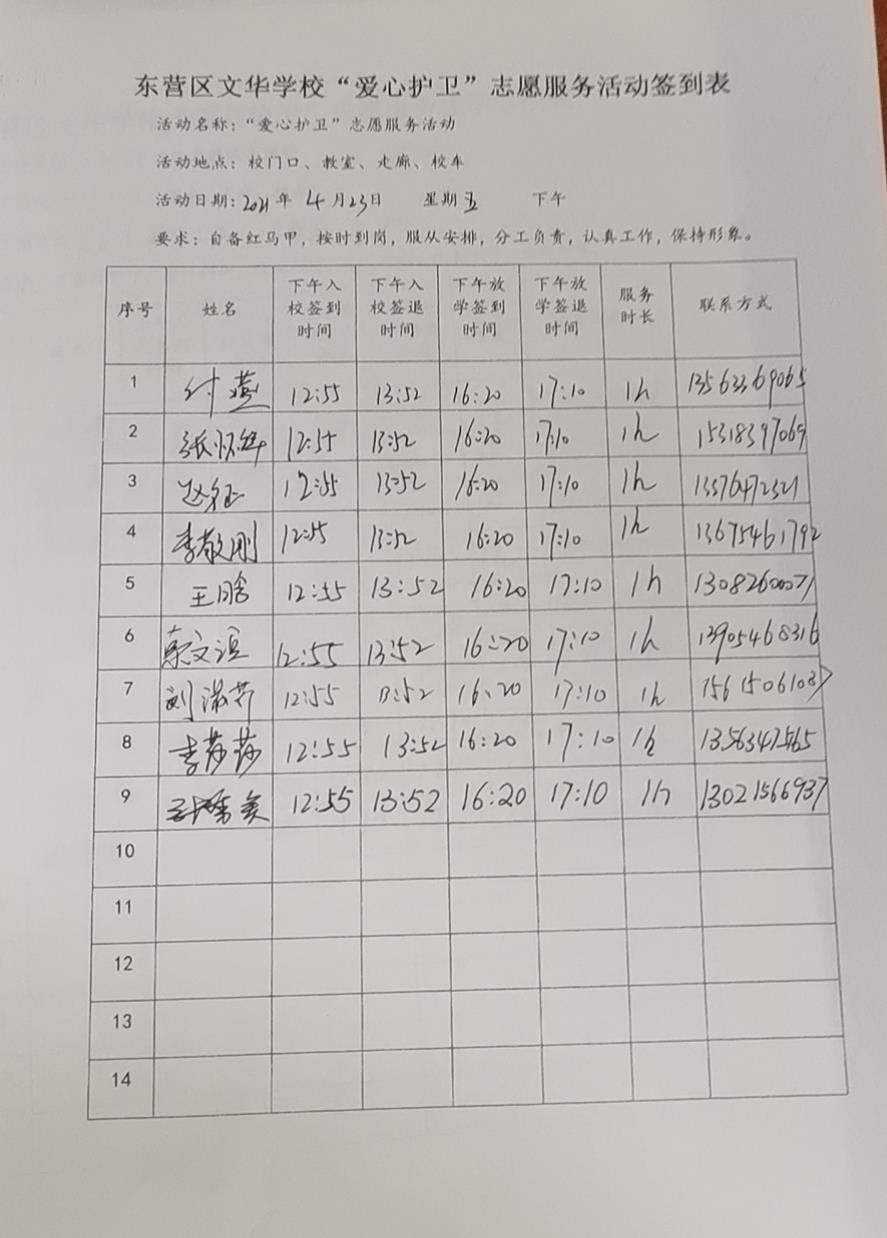 东营区文华学校“爱心护卫”志愿服务活动签到表
活动名称：“爱心护卫”志愿服务活动
活动地点：校门口、教室、走廊、校车
活动日期：2021年 4月23日 星期五 下午
要求：自备红马甲，按时到岗，服从安排，分工负责，认真工作，保持形象。
序号 姓名 下午入校签到时间 下午入校签退时间 下午放学签到时间 下午放学签退时间 服务时长 联系方式
1 付燕 12:55 13:52 16:20 17:10 1h 13563369065
2 张怀华 12:55 13:52 16:20 17:10 1h 15318397069
3 赵征 12:55 13:52 16:20 17:10 1h 13376472321
4 李敬刚 12:55 13:52 16:20 17:10 1h 13675461792
5 王晗 12:55 13:52 16:20 17:10 1h 13082600071
6 12:55 13:52 16:20 17:10 1h 13905468316
7 刘淑芹 12:55 13:52 16:20 17:10 1h 15615061037
8 李莎莎 12:55 13:52 16:20 17:10 1h 13563472565
9 12:55 13:52 16:20 17:10 1h 13021566937
10
11
12
13
14